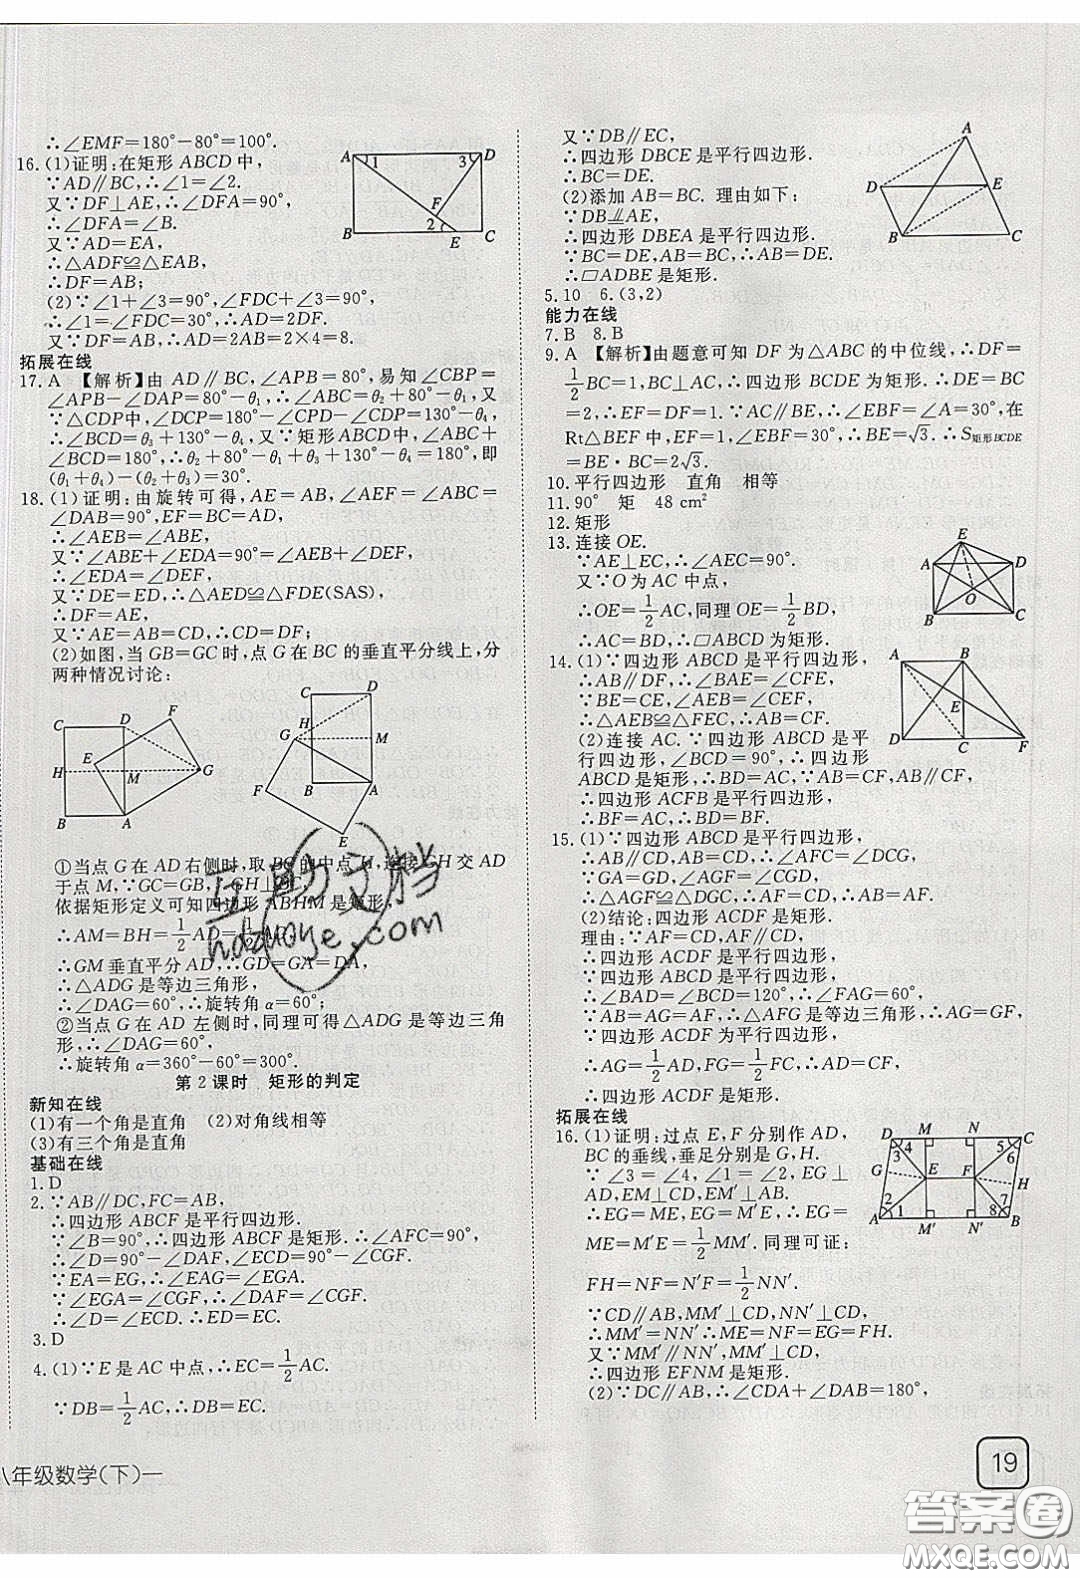 ∴∠EMF=180°-80°=100°.
16.(1)证明:在矩形 ABCD 中,
∵AD∥BC,∴∠1=∠2.
又∵DF⊥AE,∴∠DFA=90°,
∴∠DFA=∠B.
又∵AD=EA,
∴△ADF≌△EAB,
∴DF=AB;
(2)∵∠1+∠3=90°,∠FDC+∠3=90°,
∴∠1=∠FDC=30°,∴AD=2DF.
又∵DF=AB,∴AD=2AB=2×4=8.
拓展在线
17.A 【解析】由 AD∥BC,∠APB=80°,易知∠CBP=
∠APB-∠DAP=80°-θ₁,∴∠ABC=θ₂+80°-θ₁,又
∵△CDP中,∠DCP=180°-∠CPD-∠CDP=130°-θ₄,
∴∠BCD=θ₃+130°-θ₄,又∵矩形ABCD中,∠ABC+
∠BCD=180°,∴θ₂+80°-θ₁+θ₃+130°-θ₄=180°,即
(θ₁+θ₄)-(θ₂+θ₃)=30°.
18.(1)证明:由旋转可得,AE=AB,∠AEF=∠ABC=
∠DAB=90°,EF=BC=AD,
∴∠AEB=∠ABE,
又∵∠ABE+∠EDA=90°=∠AEB+∠DEF,
∴∠EDA=∠DEF,
又∵DE=ED,∴△AED≌△FDE(SAS),
∴DF=AE,
又∵AE=AB=CD,∴CD=DF;
(2)如图,当GB=GC时,点G在BC的垂直平分线上,分
两种情况讨论:
①当点G在AD右侧时,取BC的中点H,连接GH交AD
于点M,∵GC=GB,∴GH⊥BC,
依据矩形定义可知四边形ABHM是矩形,
∴AM=BH=1/2AD=1/2AG,
∴GM垂直平分AD,∴GD=GA=DA,
∴△ADG是等边三角形,
∴∠DAG=60°,∴旋转角α=60°;
②当点G在AD左侧时,同理可得△ADG是等边三角
形,∴∠DAG=60°,
∴旋转角α=360°-60°=300°.
第2课时 矩形的判定
新知在线
(1)有一个角是直角 (2)对角线相等
(3)有三个角是直角
基础在线
1.D
2.∵AB∥DC,FC=AB,
∴四边形ABCF是平行四边形.
∵∠B=90°,∴四边形ABCF是矩形.∴∠AFC=90°,
∴∠D=90°-∠DAF,∠ECD=90°-∠CGF.
∵EA=EG,∴∠EAG=∠EGA.
∵∠EGA=∠CGF,∴∠DAF=∠CGF.
∴∠D=∠ECD.∴ED=EC.
3.D
4.(1)∵E是AC中点,∴EC=1/2AC.
∵DB=1/2AC,∴DB=EC.
八年级数学(下)一
又∵DB∥EC,
∴四边形DBCE是平行四边形.
∴BC=DE.
(2)添加AB=BC. 理由如下:
∵DB∥=AE,
∴四边形DBEA是平行四边形.
∵BC=DE,AB=BC,∴AB=DE.
∴□ADBE是矩形.
5.10 6.(3,2)
能力在线
7.B 8.B
9.A 【解析】由题意可知DF为△ABC的中位线,∴DF=
1/2BC=1,BC⊥AC,∴四边形BCDE为矩形.∴DE=BC
=2,∴EF=DF=1.∵AC∥BE,∴∠EBF=∠A=30°,在
Rt△BEF中,EF=1,∠EBF=30°,∴BE=√3.∴S矩形BCDE
=BE·BC=2√3.
10.平行四边形 直角 相等
11.90° 矩 48 cm²
12.矩形
13.连接OE.
∵AE⊥EC,∴∠AEC=90°.
又∵O为AC中点,
∴OE=1/2AC,同理OE=1/2BD,
∴AC=BD,∴□ABCD为矩形.
14.(1)∵四边形ABCD是平行四边形,
∴AB∥DF,∴∠BAE=∠CFE,
∵BE=CE,∠AEB=∠CEF,
∴△AEB≌△FEC,∴AB=CF.
(2)连接AC.∵四边形ABCD是平
行四边形,∠BCD=90°,∴四边形
ABCD是矩形,∴BD=AC,∵AB=CF,AB∥CF,
∴四边形ACFB是平行四边形,
∴BF=AC,∴BD=BF.
15.(1)∵四边形ABCD是平行四边形,
∴AB∥CD,AB=CD,∴∠AFC=∠DCG,
∵GA=GD,∠AGF=∠CGD,
∴△AGF≌△DGC,∴AF=CD,∴AB=AF.
(2)结论:四边形ACDF是矩形.
理由:∵AF=CD,AF∥CD,
∴四边形ACDF是平行四边形,
∵四边形ABCD是平行四边形,
∴∠BAD=∠BCD=120°,∴∠FAG=60°,
∵AB=AG=AF,∴△AFG是等边三角形,∴AG=GF,
∵四边形ACDF为平行四边形,
∴AG=1/2AD,FG=1/2CF,∴AD=CF,
∴四边形ACDF是矩形.
拓展在线
16.(1)证明:过点E,F分别作AD,
BC的垂线,垂足分别是G,H.
∵∠3=∠4,∠1=∠2,EG⊥
AD,EM⊥CD,EM′⊥AB,
∴EG=ME,EG=M′E,∴EG=
ME=M′E=1/2MM′.同理可证:
FH=NF=N′F=1/2NN′.
∵CD∥AB,MM′⊥CD,NN′⊥CD,
∴MM′=NN′.∴ME=NF=EG=FH.
又∵MM′∥NN′,MM′⊥CD,
∴四边形EFNM是矩形.
(2)∵DC∥AB,∴∠CDA+∠DAB=180°,
19
答案圈
MXQE.COM